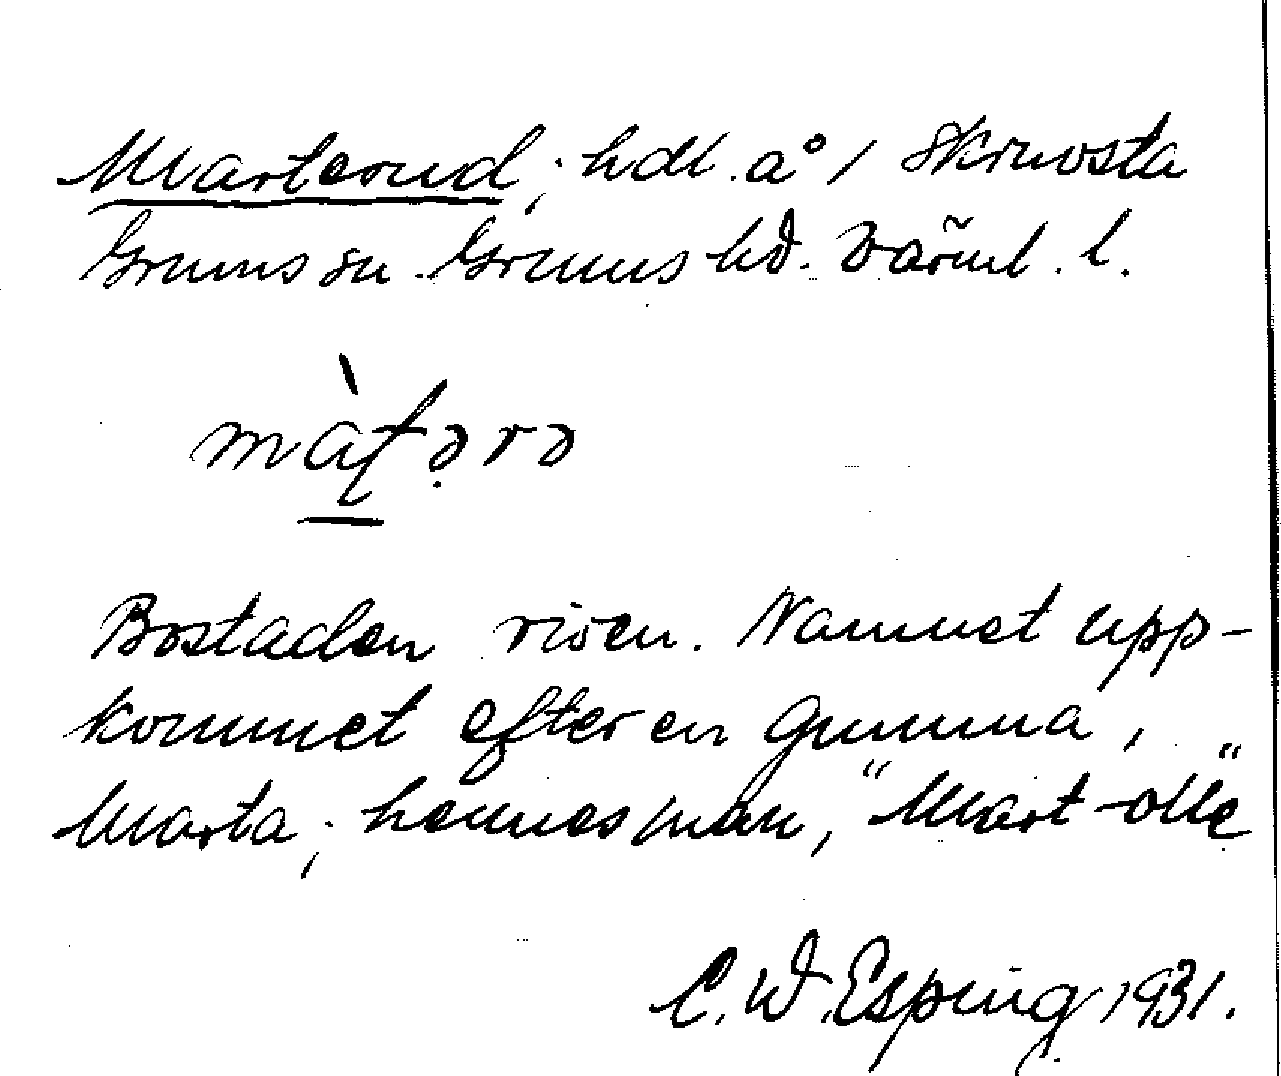 Marterud; hdl. a° 1 Skruvsta
Grums sn. Grums hd. Värml. l.
màʈərə
Bostaden riven. Namnet upp-
kommet efter en gumma,
Marta; hennes man, "Mart-Olle"
C. W. Esping 1931.